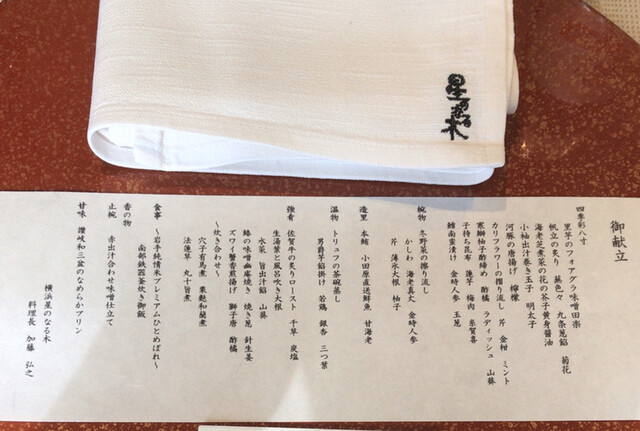 星のなる木
御献立
四季彩八寸
里芋のフォアグラ味噌田楽
帆立の炙り 蕪色々 九条葱餡 菊花
海老芝煮菜の花の芥子黄身醤油
小袖出汁巻き玉子 明太子
河豚の唐揚げ 檸檬
カリフラワーの擂り流し 芹 金柑 ミント
寒鰤柚子酢締め 酢橘 ラディッシュ 山葵
子持ち昆布 蓮芋 梅肉 糸賀喜
鱈南蛮漬け 金時人参 玉葱
椀物 冬野菜の擂り流し
かしわ 海老真丈 金時人参
芹 薄氷大根 柚子
造里 本鮪 小田原直送鮮魚 甘海老
温物 トリュフの茶碗蒸し
男爵芋餡掛け 若鶏 銀杏 三つ葉
強肴 佐賀牛の炙りロースト 千草 炭塩
生湯葉と風呂吹き大根
水菜 旨出汁餡 山葵
鰆の味噌幽庵焼き 焼き葱 針生姜
ズワイ蟹香煎揚げ 獅子唐 酢橘
〜炊き合わせ〜
穴子有馬煮 粟麩和蘭煮
法蓮草 丸十旨煮
食事 〜岩手純情米プレミアムひとめぼれ〜
南部鉄器釜炊き御飯
香の物
止椀 赤出汁合わせ味噌仕立て
甘味 讃岐和三盆のなめらかプリン
横浜星のなる木
料理長 加藤 弘之